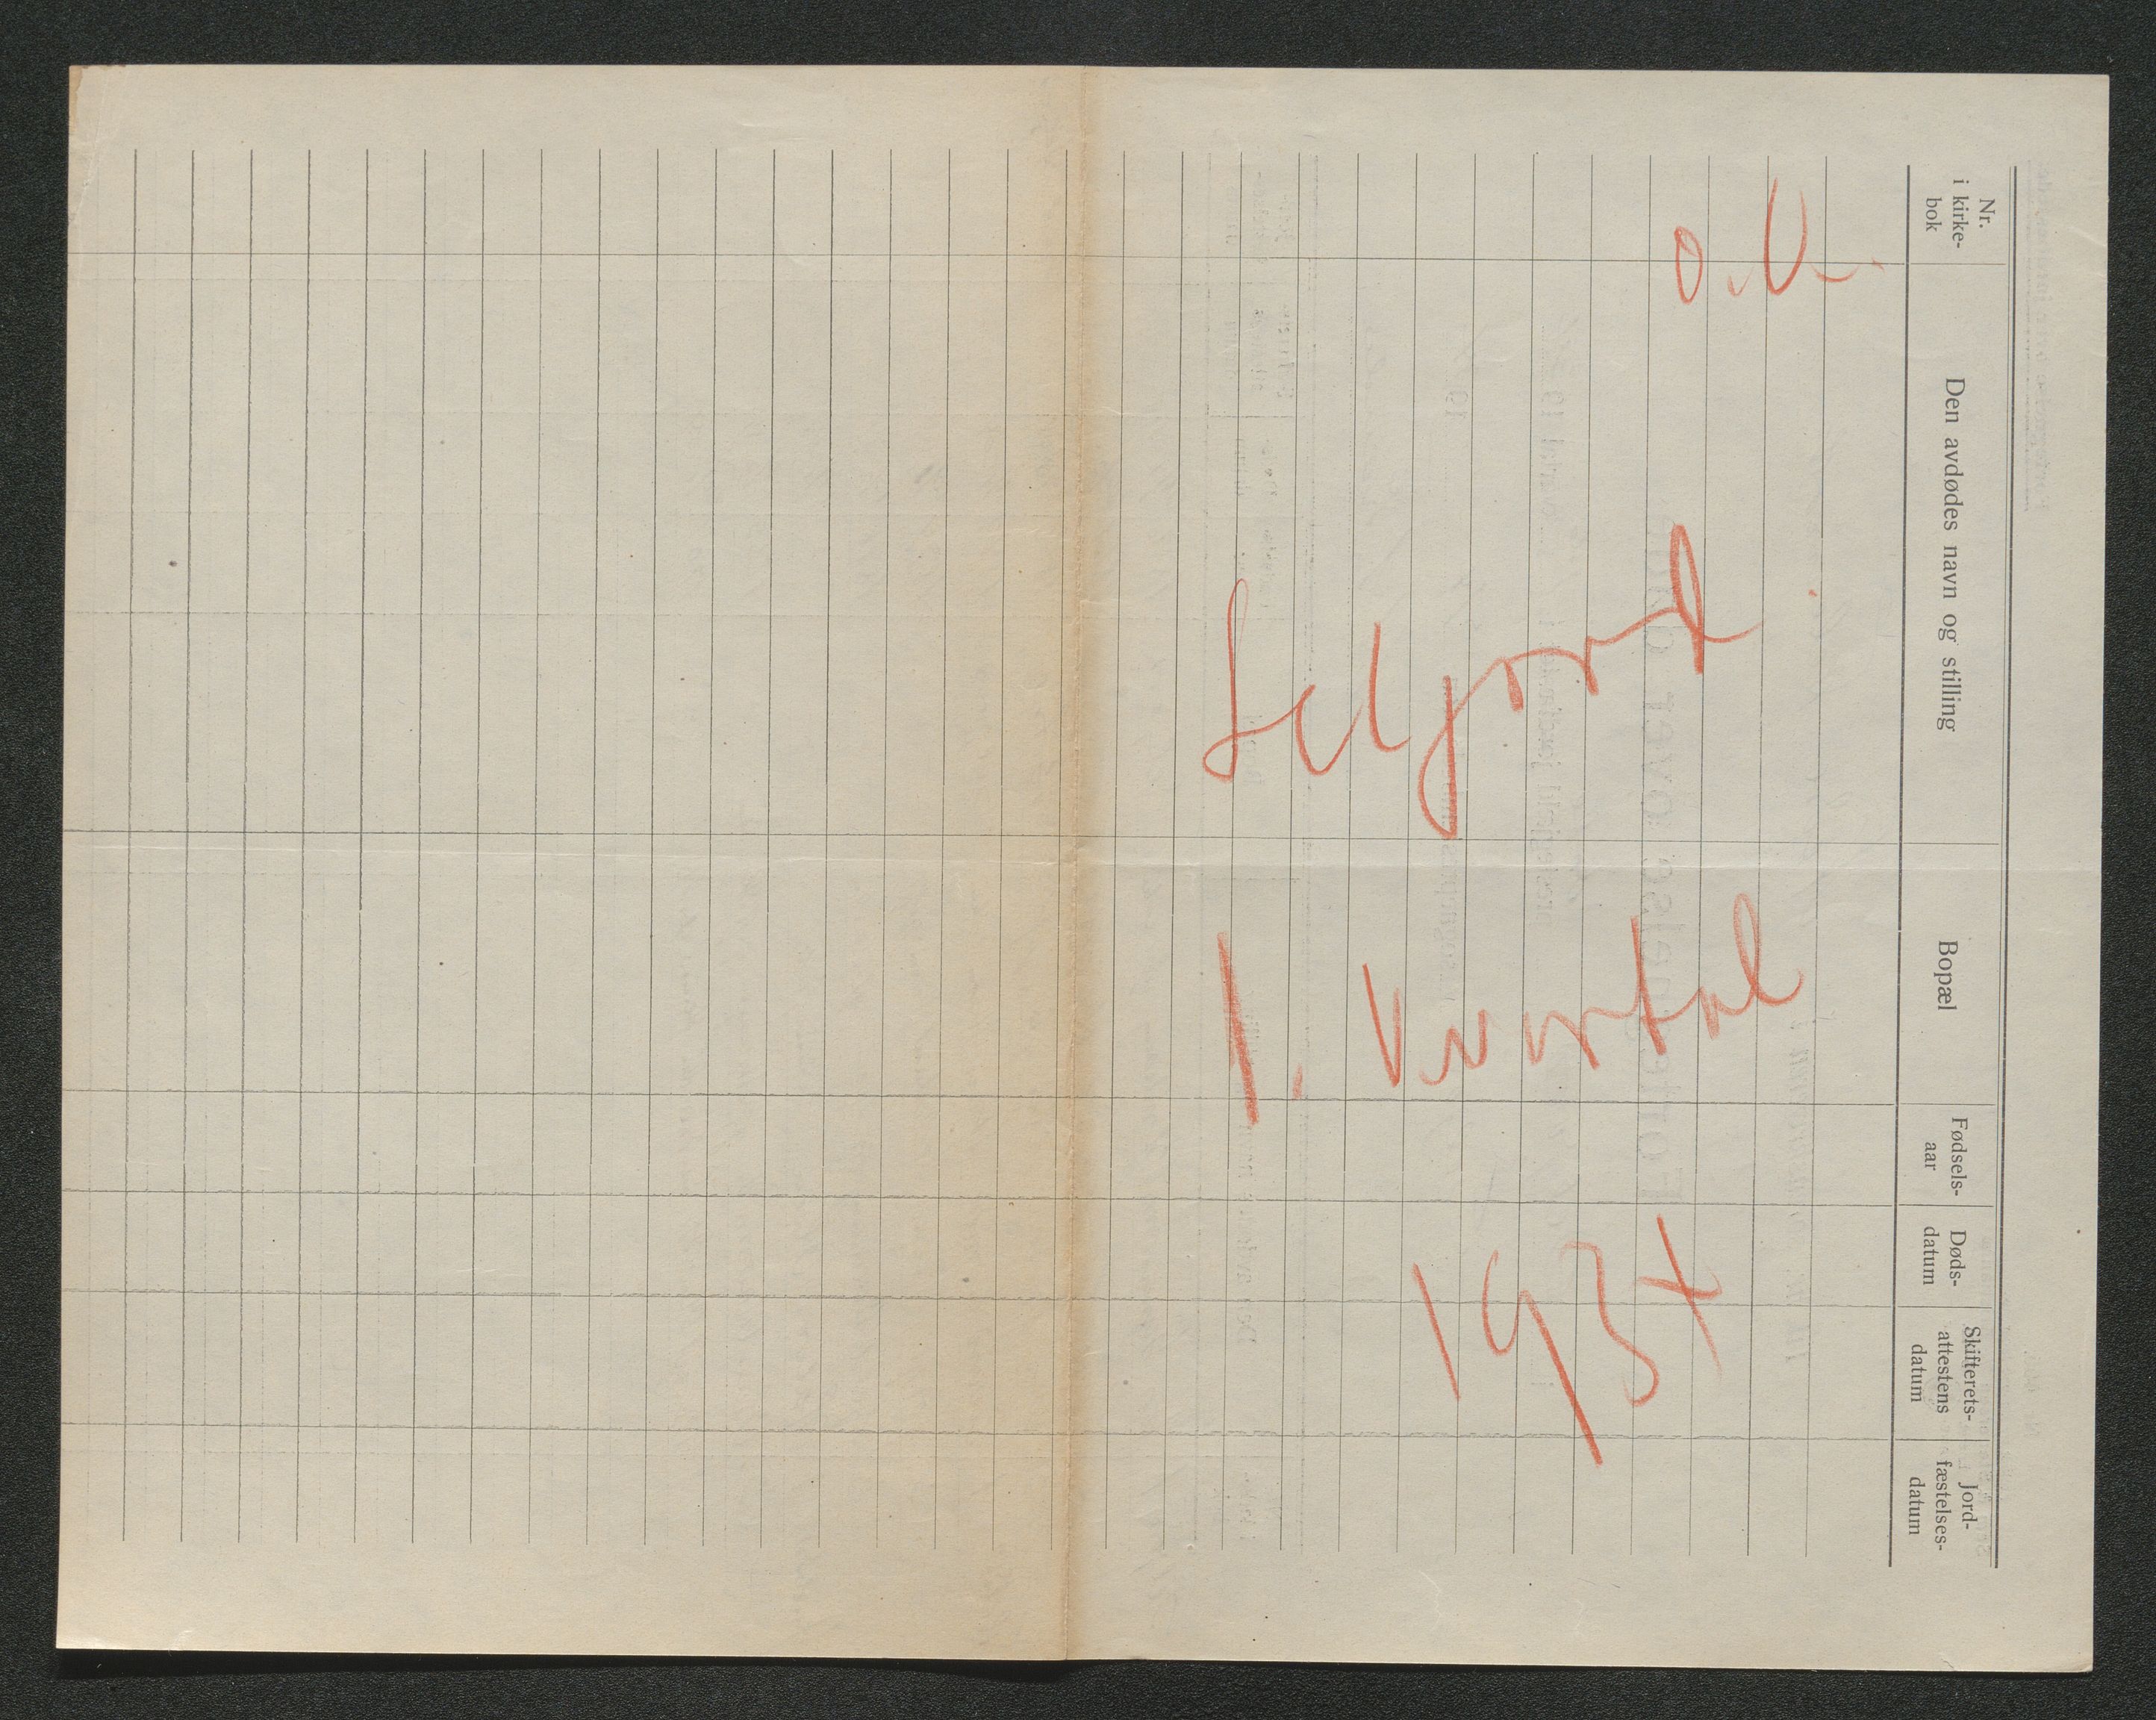 Nr.
i kirke-
bok
Den avdødes navn og stilling
Bopæl
Fødsels-
aar
Døds-
datum
Skifterets-
attestens
datum
Jord-
fæstelses-
datum
Seljord
1. kvartal
1934